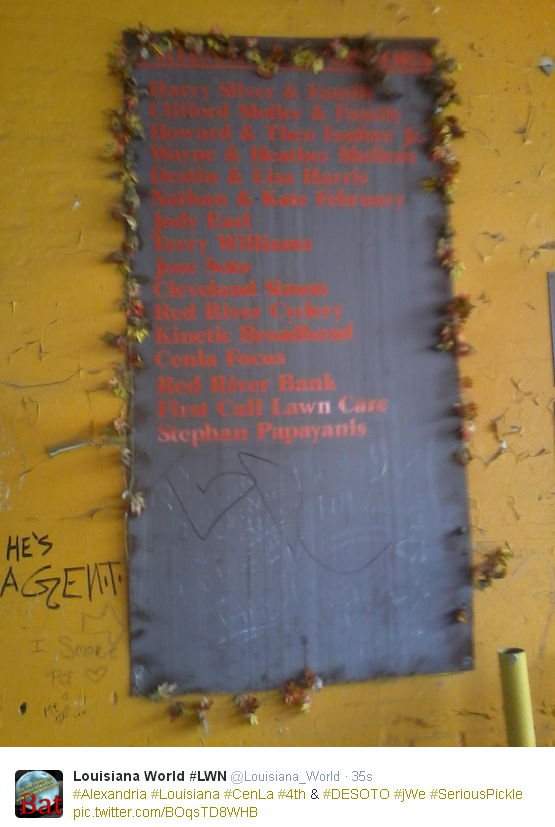 Harry Silver & Family
Clifford Moller & Family
Howard & Theo Jr.
Wayne & Heather
Destin & Lisa Harris
Nathan & Kate February
Jody Earl
Terry Williams
Jose Soto
Cleveland Simon
Red River Cyclery
Kinetic Broadband
Cenla Focus
Red River Bank
First Call Lawn Care
Stephan Papayanis
HE'S
AGENT.
I Smoke
Pot
Bat
Louisiana World #LWN @Louisiana_World · 35s
#Alexandria #Louisiana #CenLa #4th & #DESOTO #jWe #SeriousPickle
pic.twitter.com/BOqsTD8WHB